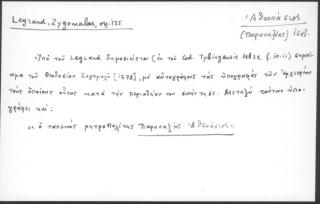 Legrand, Zygomalas, σημ. 135
Ἀθανάσιος
(Παροναξίας) 1578.
Ὑπὸ τοῦ Legrand δημοσιεύεται (ἐκ τοῦ Cod. Tybingensis Mb 37, f. 10-11) σημείωμα
τοῦ Θεοδοσίου Ζυγομαλᾶ [1578], μὲ αὐτογράφους τὰς ὑπογραφὰς τῶν ἀρχιερέων
τοὺς ὁποίους οὗτος κατὰ τὴν περιοδείαν του συνήντησε. Μεταξὺ τούτων ὑπογράφει
καὶ:
"ὁ ταπεινὸς μητροπολίτης Παροναξίας Ἀθανάσιος"